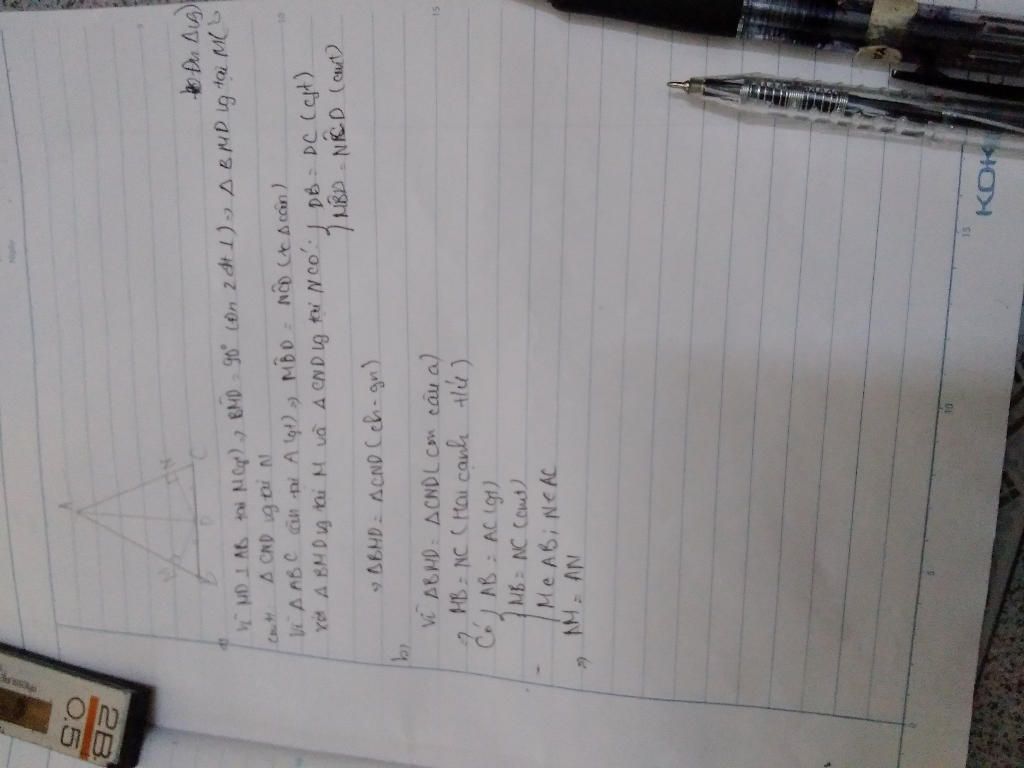 A
M
N
B
D
C
a)
Vì MD ⊥ AB tại M(gt) => BMD = 90° (Đn 2 đt ⊥) => Δ BMD vg tại M (
Đn Δ vg)
cmtt Δ CND vg tại N
Vì Δ ABC cân tại A (gt) => MBD = NCD (t/c Δ cân)
xét Δ BMD vg tại M và Δ CND vg tại N có: { DB = DC (gt)
MBD = NCD (cmt)
=> ΔBMD = ΔCND (ch-gn)
b)
Vì ΔBMD = ΔCND (cm câu a)
=> MB = NC (Hai cạnh t/ứ)
Có { AB = AC (gt)
MB = NC (cmt)
M ∈ AB; N ∈ AC
=> AM = AN
2B
0.5
5
10
15
10
15